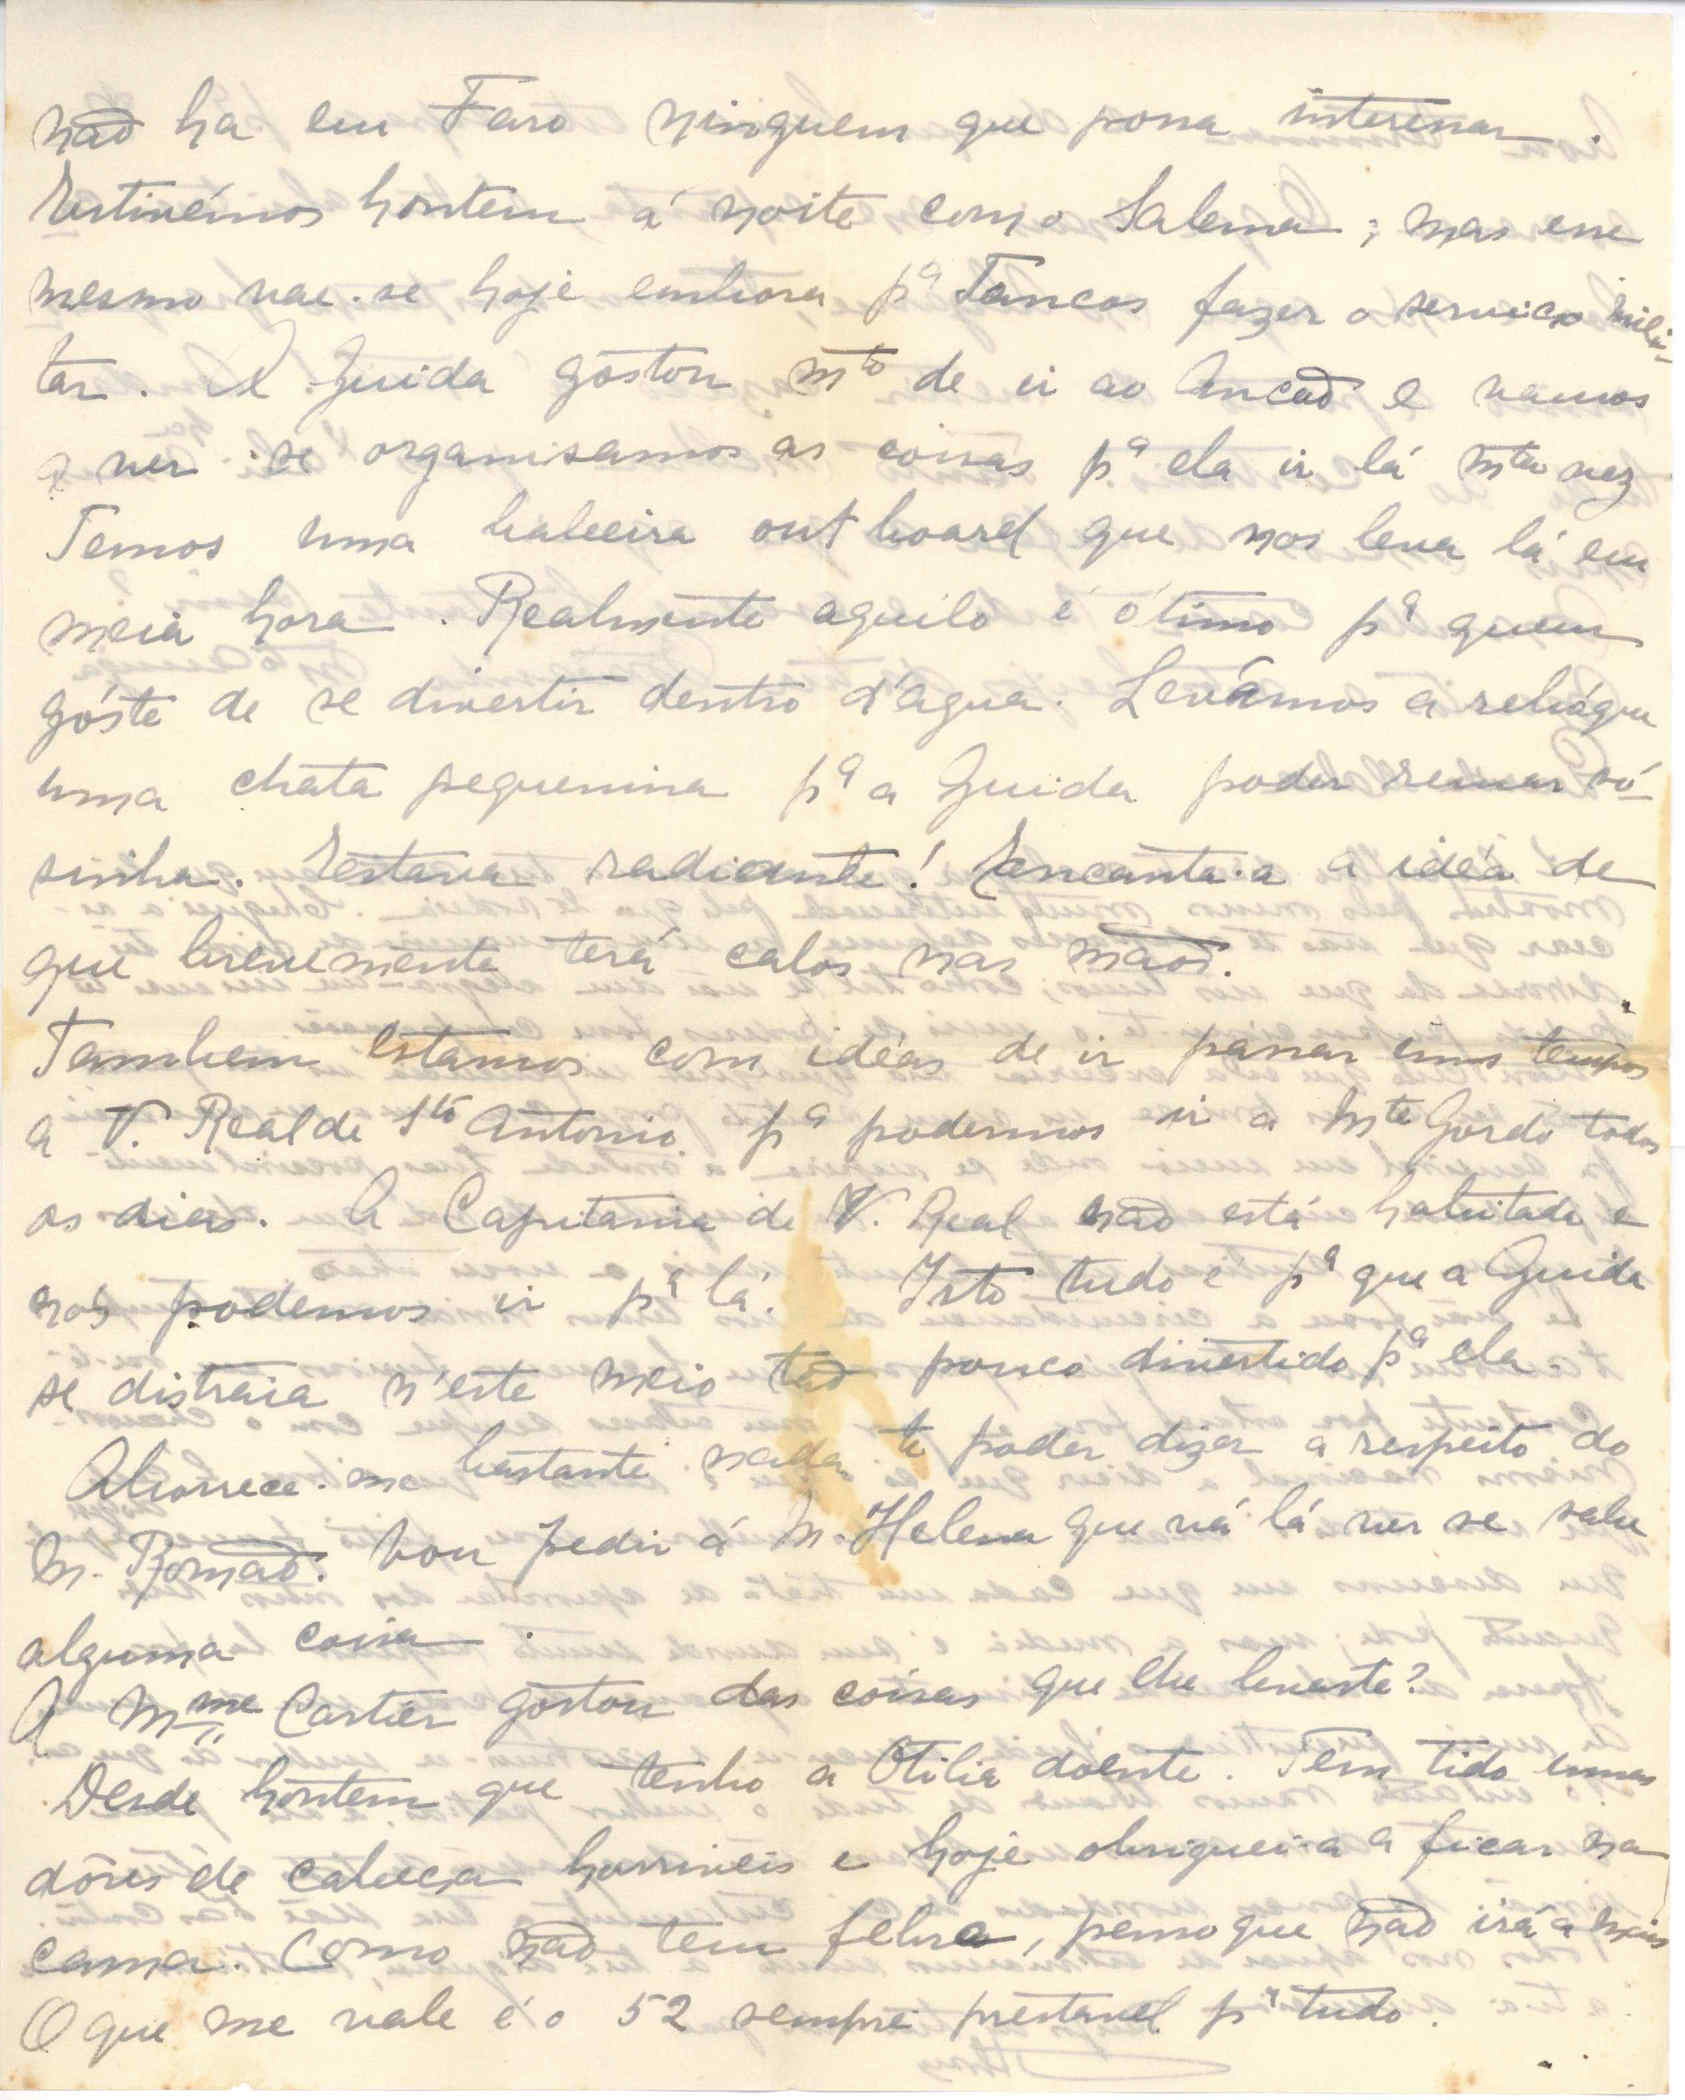 não ha em Faro ninguem que possa interessar.
Estivémos hontem á noite com o Salema; mas esse
mesmo vae-se hoje embora pª Tancos fazer o serviço mili-
tar. A Guida gostou mto de ir ao Ancão e vamos
a ver se organisamos as coisas pª ela ir lá mta vez
Temos uma baleeira out board que nos leva lá em
meia hora. Realmente aquilo é ótimo pª quem
góste de se divertir dentro d'agua. Levámos a reboque
uma chata pequenina pª a Guida poder remar só-
sinha. Estava radiante! Encanta-a a idéa de
que brevemente terá calos nas mãos.
Tambem estamos com idéas de ir passar uns tempos
a V. Real de Sto Antonio pª podermos ir a Mte Gordo todos
os dias. A Capitania de V. Real não está habitada e
nós podemos ir pª lá. Isto tudo é pª que a Guida
se distraia n'este meio tão pouco divertido pª ela.
Aborrece-me bastante nada te poder dizer a respeito do
M. Romão. Vou pedir á M. Helena que vá lá ver se sabe
alguma coisa.
A Mme Cartier gostou das coisas que lhe levaste?
Desde hontem que tenho a Otilia doente. Tem tido umas
dôres de cabeça horriveis e hoje obriguei-a a ficar na
cama. Como não tem febre, penso que não irá a mais
O que me vale é o 52 sempre prestavel pª tudo.